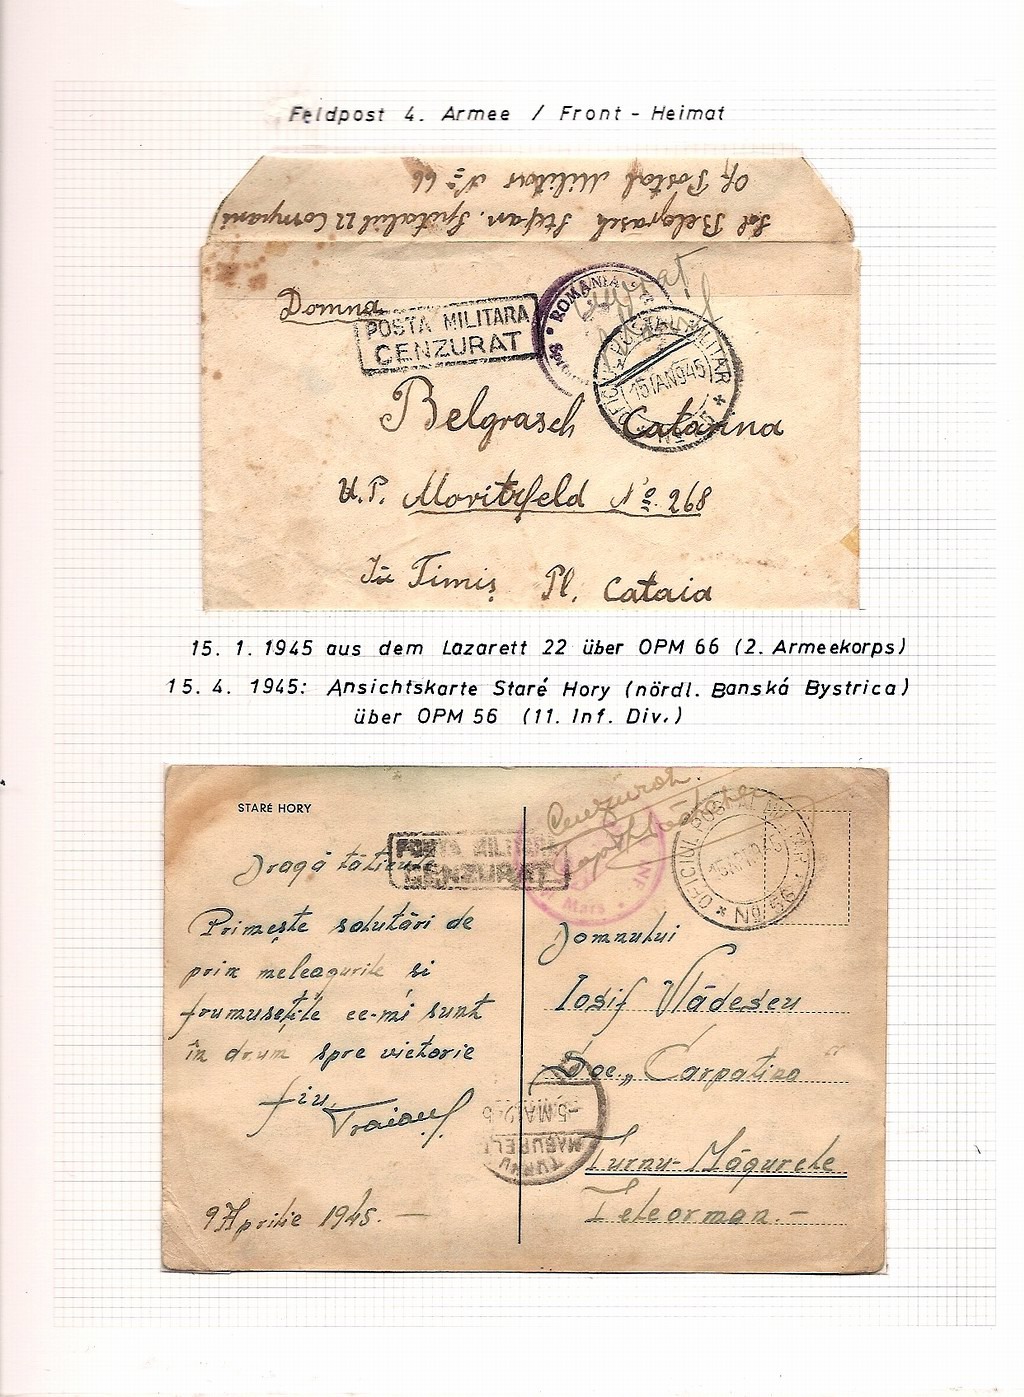 Feldpost 4. Armee / Front - Heimat
Sol Belgrasch Stefan. Spitalul 22 Companii
Of. Postal Militar No 66
Domna
POSTA MILITARA
CENZURAT
ROMANIA
OFICIUL POSTAL MILITAR
15 IAN 945
Belgrasch Catarina
U.P. Moritzfeld No. 268
Timiș Pl. Cataia
15. 1. 1945 aus dem Lazarett 22 über OPM 66 (2. Armeekorps)
15. 4. 1945: Ansichtskarte Staré Hory (nördl. Banská Bystrica)
über OPM 56 (11. Inf. Div.)
STARÉ HORY
Cenzurat
POSTA MILITARA
CENZURAT
INF
Mars
OFICIUL POSTAL MILITAR
No 56
Dragă tăticu
Primește salutări de
prin meleagurile si
frumusețile ce-mi sunt
în drum spre victorie
fiu, Traian
9 Aprilie 1945. —
Domnului
Iosif Vlădescu
Soc. „Carpatina"
Turnu-Măgurele
Teleorman.-
TURNU
MAGURELE